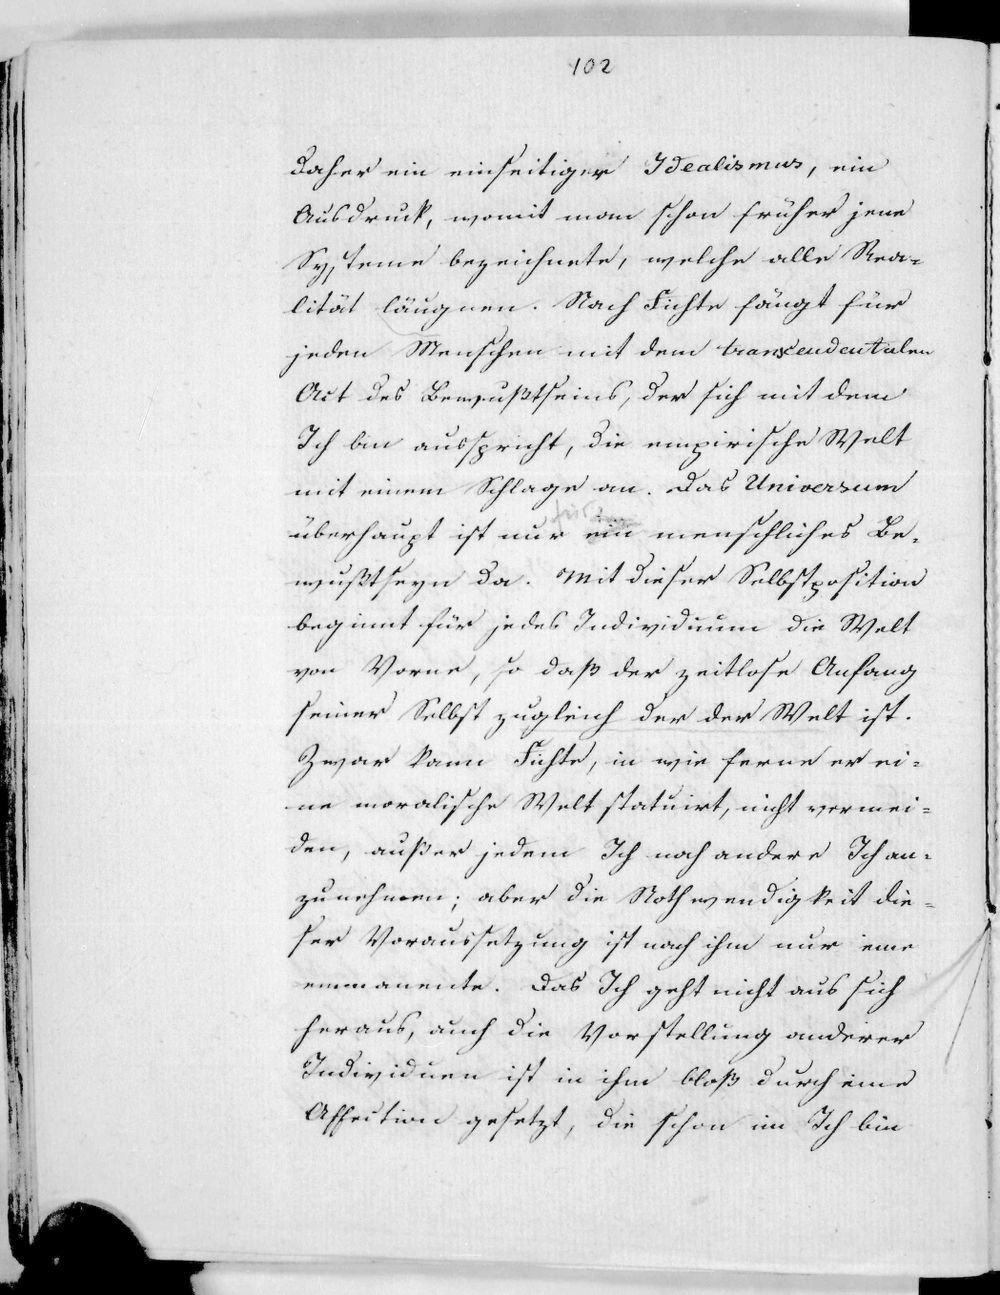 102
Daher ein einseitiger Idealismus, ein
Ausdruck, womit man schon früher jene
Systeme bezeichnete, welche alle Rea=
lität läugnen. Nach Fichte fängt für
jeden Menschen mit dem transcendentalen
Act des Bewußtseins, der sich mit dem
Ich bin ausspricht, die empirische Welt
mit einem Schlage an. Das Universum
für
überhaupt ist nur ein menschliches Be=
wußtseyn da. Mit dieser Selbstposition
beginnt für jedes Individuum die Welt
von Vorne, so daß der zeitlose Anfang
seiner Selbst zugleich der der Welt ist.
Zwar kann Fichte, in wie ferne er ei=
ne moralische Welt statuirt, nicht vermei=
den, außer jedem Ich noch andere Ich an=
zunehmen; aber die Nothwendigkeit die=
ser Voraussetzung ist nach ihm nur eine
emmanente. Das Ich geht nicht aus sich
heraus, auch die Vorstellung anderer
Individuen ist in ihm bloß durch eine
Affection gesetzt, die schon im Ich bin